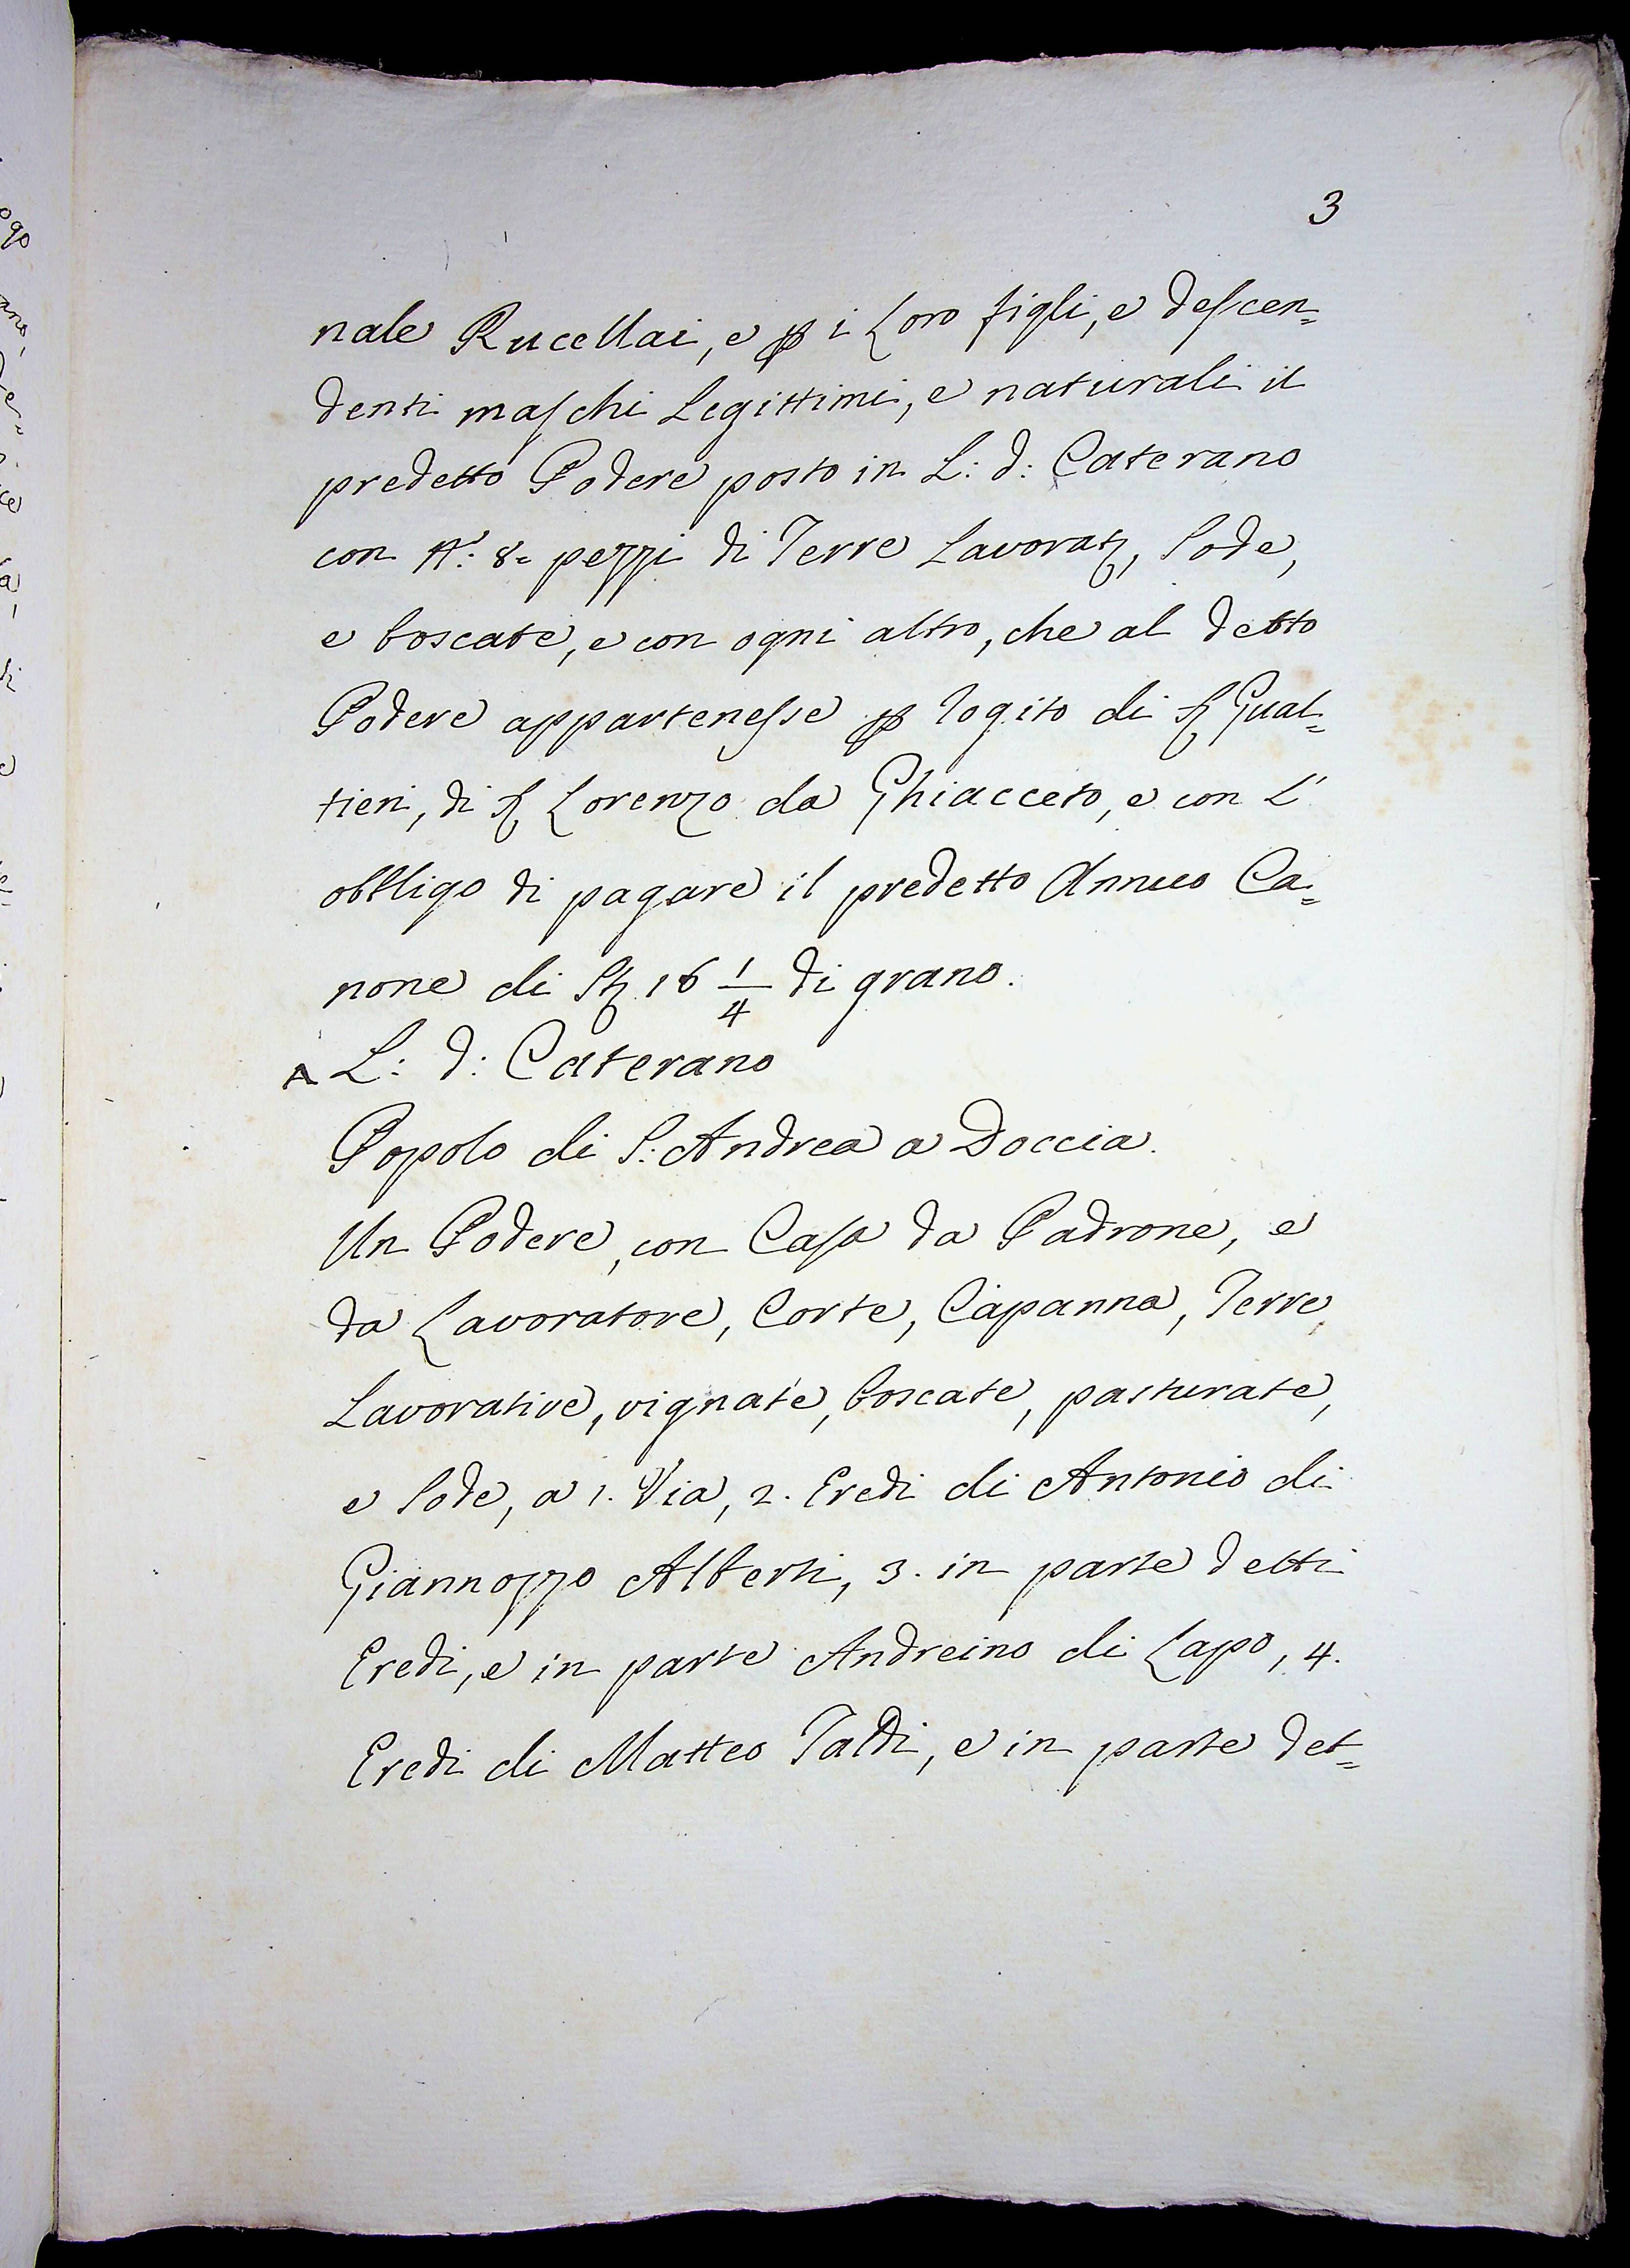 3
nale Rucellai, e p i Loro figli, e descen=
denti maschi Legittimi, e naturali il
predetto Podere posto in L: d: Caterano
con N: 8= pezzi di Terre Lavorat, Sode,
e boscate, e con ogni altro, che al detto
Podere appartenesse p rogito di S Gual=
tieri, di S Lorenzo da Ghiacceto, e con L'
obbligo di pagare il predetto Annuo Ca=
none di St 16 1/4 di grano.
A L: d: Caterano
Popolo di S: Andrea a Doccia.
Un Podere, con Casa da Padrone, e
da Lavoratore, Corte, Capanna, Terre,
Lavorative, vignate, boscate, pasturate,
e Sode, a 1. Via, 2. Eredi di Antonio di
Giannozzo Alberti, 3. in parte detti
Eredi, e in parte Andreino di Lapo, 4.
Eredi di Matteo Taldi, e in parte det=